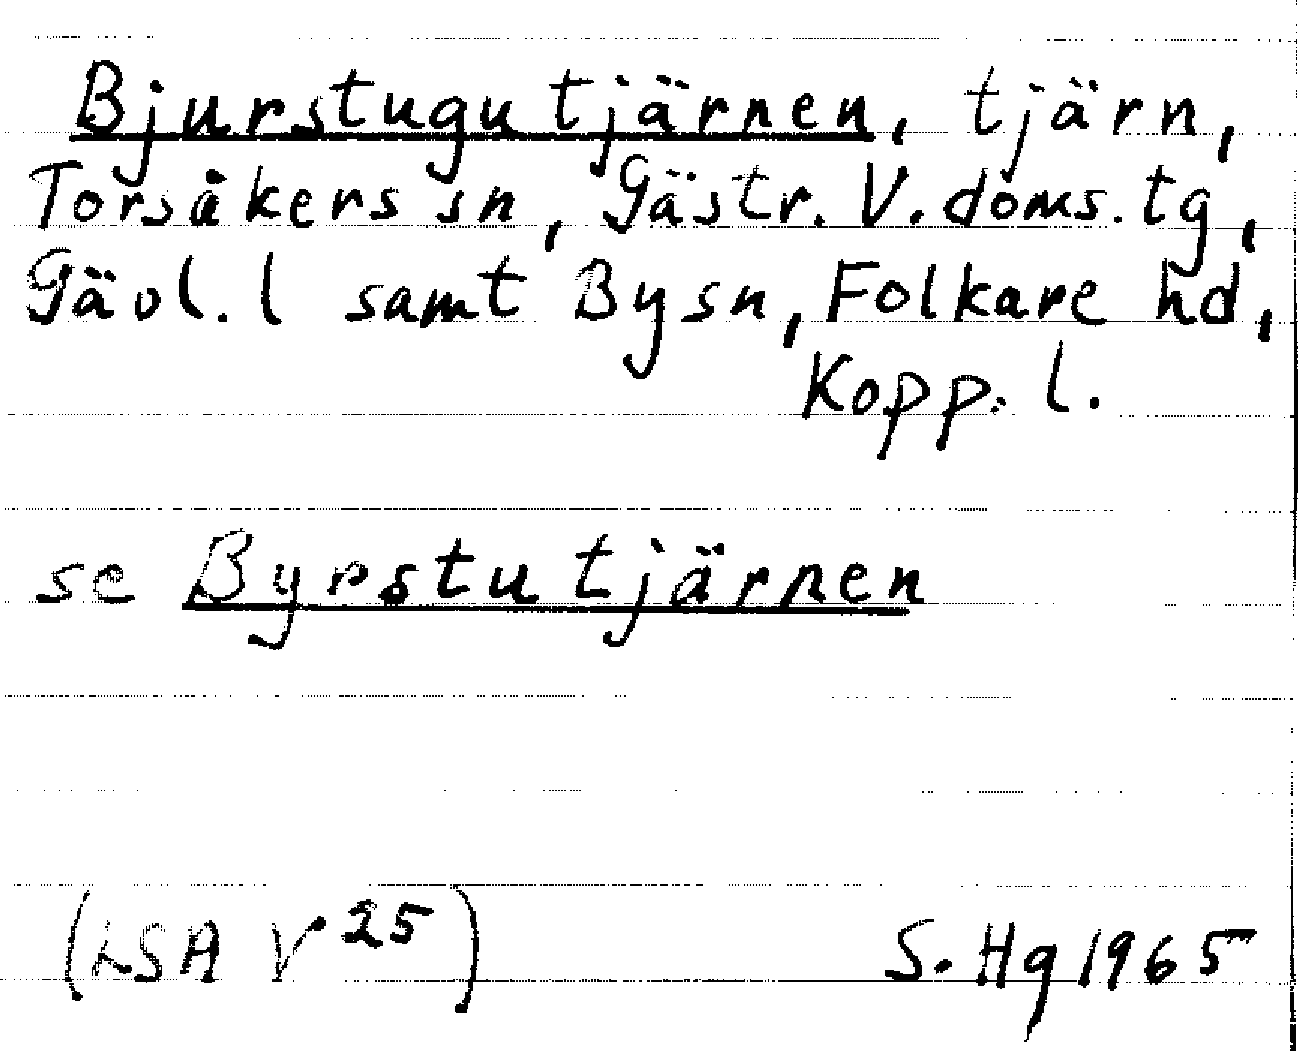 Bjurstugutjärnen, tjärn,
Torsåkers sn, Gästr. V. doms. tg,
Gävl. l samt By sn, Folkare hd,
Kopp. l.
se Byrstutjärnen
(LSA V 25)
S. Hg 1965